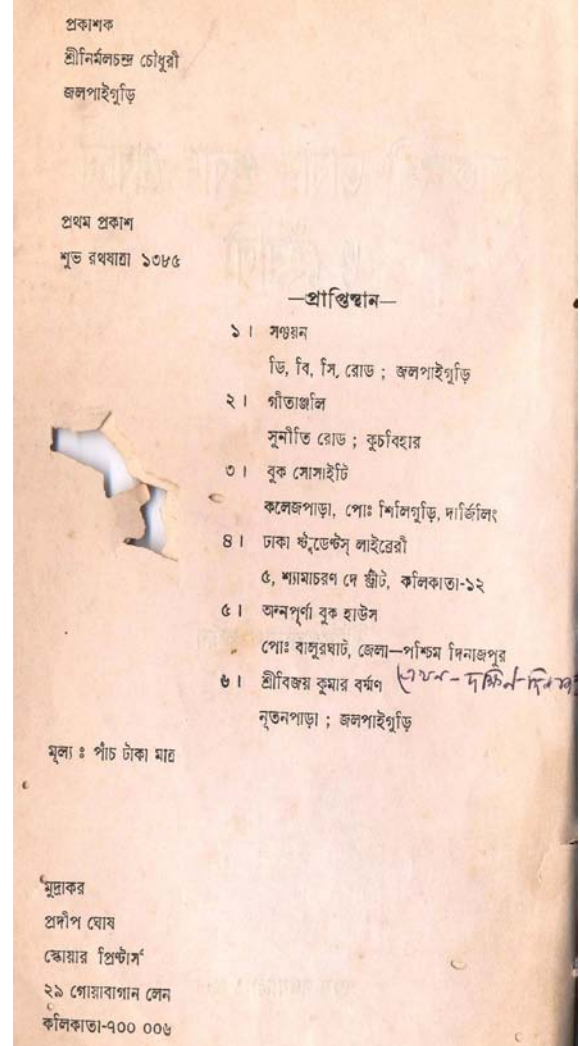 প্রকাশক
শ্রীনির্মলচন্দ্র চৌধুরী
জলপাইগুড়ি
প্রথম প্রকাশ
শুভ রথযাত্রা ১৩৮৫
—প্রাপ্তিস্থান—
১। সঞ্চয়ন
ডি, বি, সি, রোড ; জলপাইগুড়ি
২। গীতাঞ্জলি
সুনীতি রোড ; কুচবিহার
৩। বুক সোসাইটি
কলেজপাড়া, পোঃ শিলিগুড়ি, দার্জিলিং
৪। ঢাকা ষ্টুডেণ্টস্ লাইব্রেরী
৫, শ্যামাচরণ দে ষ্ট্রীট, কলিকাতা-১২
৫। অন্নপূর্ণা বুক হাউস
পোঃ বালুরঘাট, জেলা—পশ্চিম দিনাজপুর
৬। শ্রীবিজয় কুমার বর্ম্মণ (এখন - দক্ষিন-
নূতনপাড়া ; জলপাইগুড়ি
মূল্য ঃ পাঁচ টাকা মাত্র
মুদ্রাকর
প্রদীপ ঘোষ
স্কোয়ার প্রিণ্টার্স
২৯ গোয়াবাগান লেন
কলিকাতা-৭০০ ০০৬